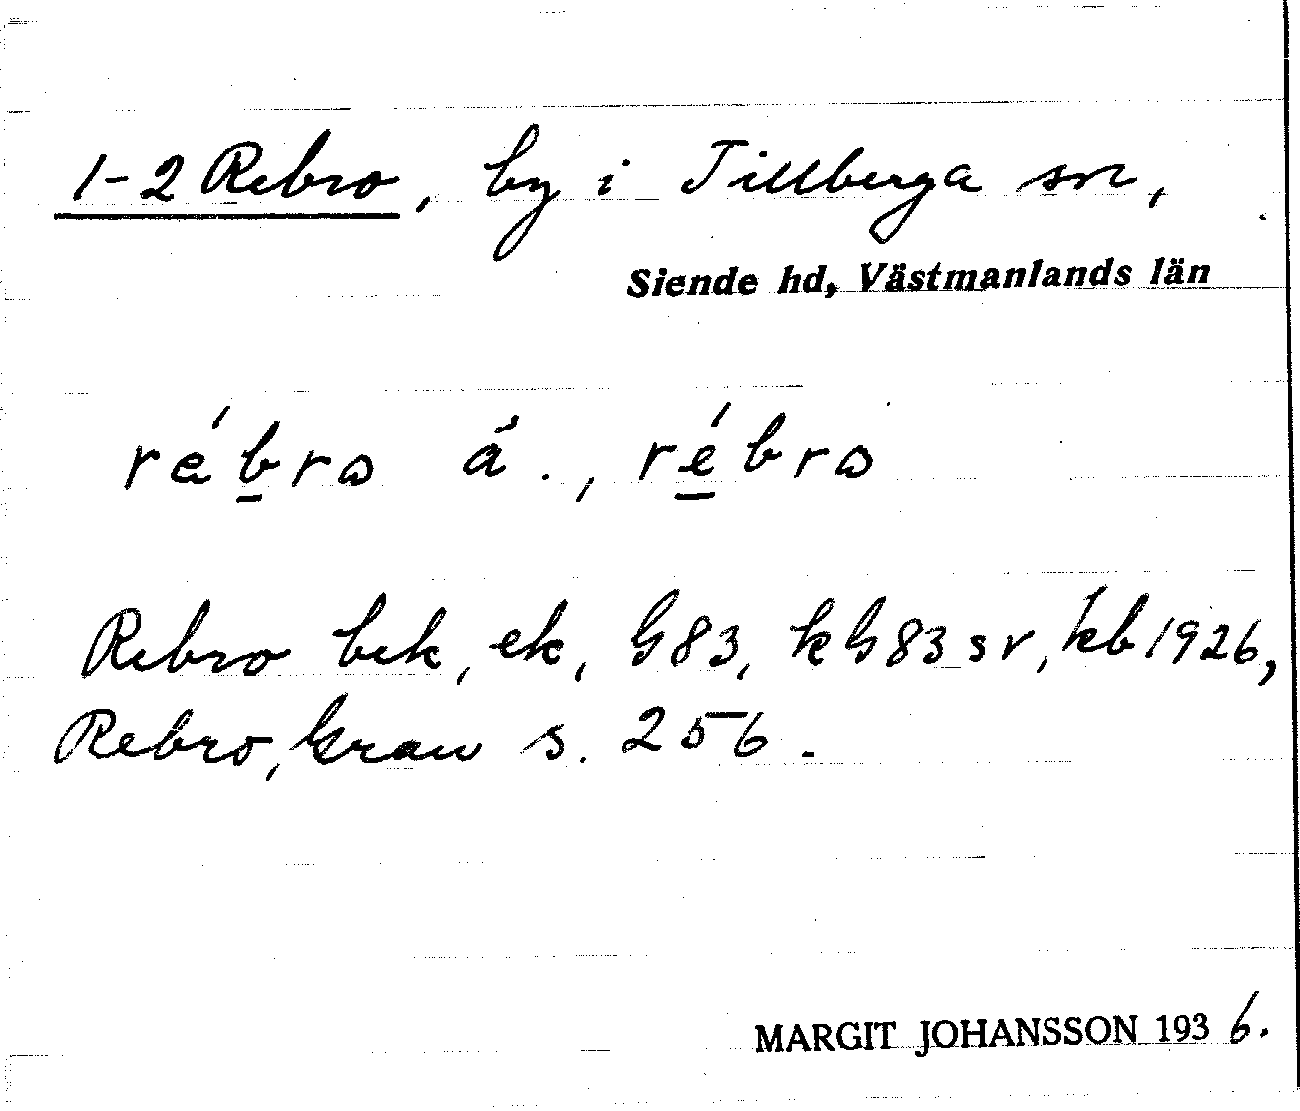 1-2 Rebro, by i Tillberga sn,
Siende hd, Västmanlands län
rébro ä., rébro
Rebro bek, ek, G83, kG83 sv, kb 1926,
Rebro, Grau s. 256.
MARGIT JOHANSSON 1936.